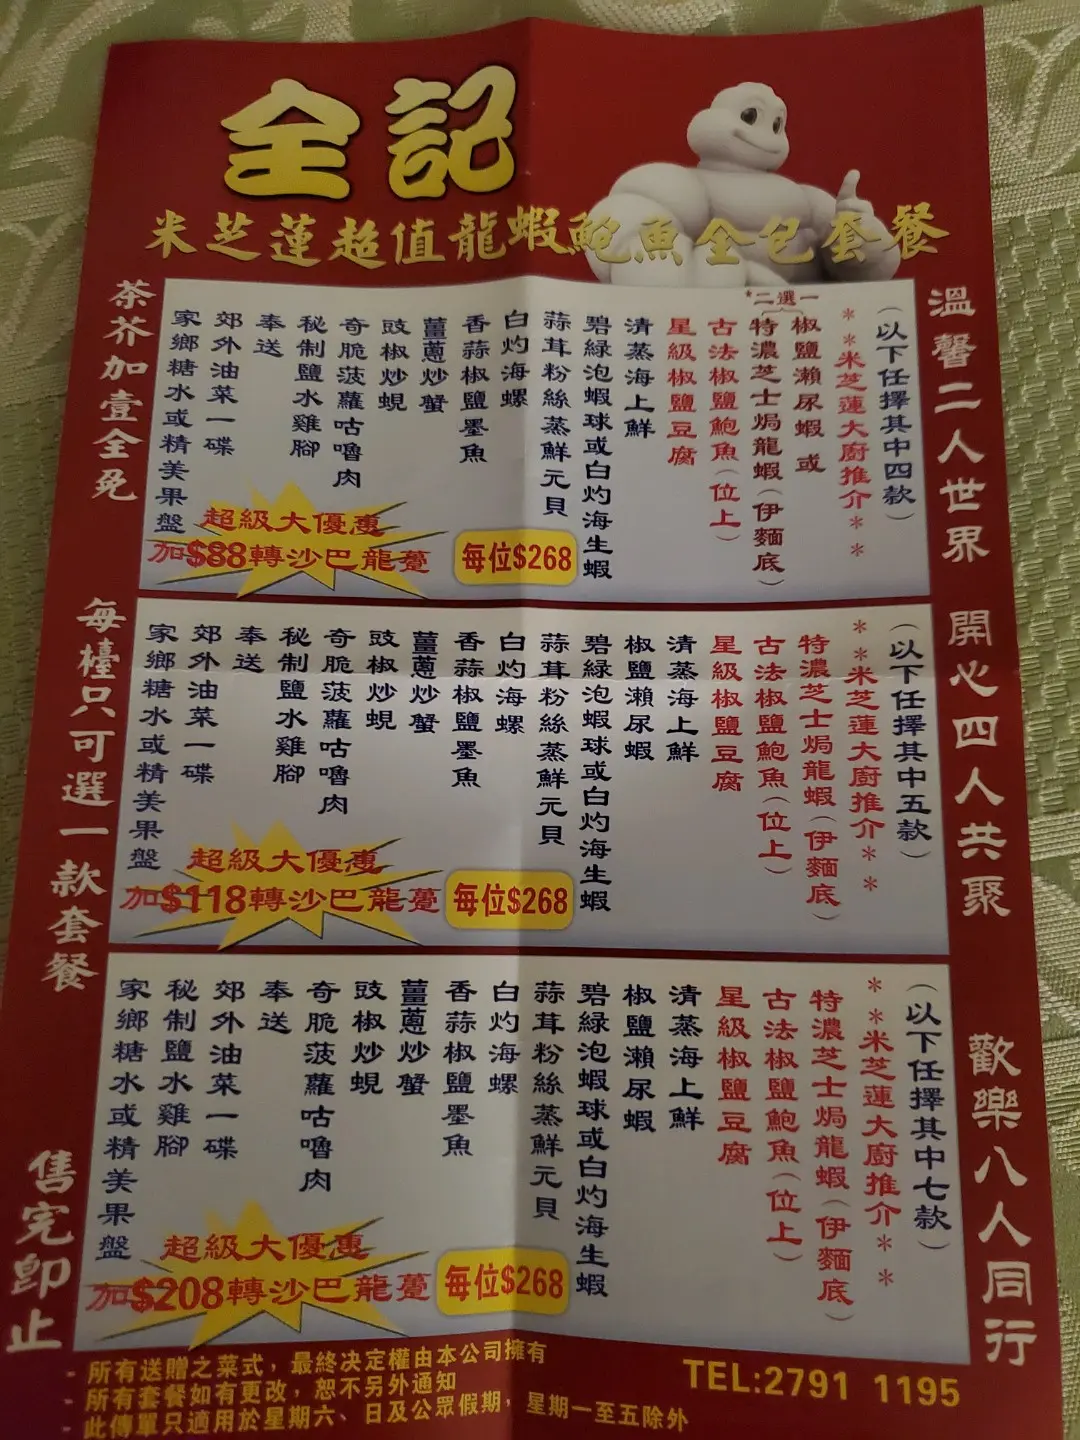 全記
米芝蓮超值龍蝦鮑魚全包套餐
溫馨二人世界
開心四人共聚
歡樂八人同行
(以下任擇其中四款)
**米芝蓮大廚推介**
*二選一
椒鹽瀨尿蝦 或
特濃芝士焗龍蝦(伊麵底)
古法椒鹽鮑魚(位上)
星級椒鹽豆腐
清蒸海上鮮
碧綠泡蝦球或白灼海生蝦
蒜茸粉絲蒸鮮元貝
白灼海螺
香蒜椒鹽墨魚
薑蔥炒蟹
豉椒炒蜆
奇脆菠蘿咕嚕肉
秘制鹽水雞腳
奉送
郊外油菜一碟
家鄉糖水或精美果盤
每位$268
超級大優惠
加$88轉沙巴龍躉
(以下任擇其中五款)
**米芝蓮大廚推介**
特濃芝士焗龍蝦(伊麵底)
古法椒鹽鮑魚(位上)
星級椒鹽豆腐
清蒸海上鮮
椒鹽瀨尿蝦
碧綠泡蝦球或白灼海生蝦
蒜茸粉絲蒸鮮元貝
白灼海螺
香蒜椒鹽墨魚
薑蔥炒蟹
豉椒炒蜆
奇脆菠蘿咕嚕肉
秘制鹽水雞腳
奉送
郊外油菜一碟
家鄉糖水或精美果盤
每位$268
超級大優惠
加$118轉沙巴龍躉
(以下任擇其中七款)
**米芝蓮大廚推介**
特濃芝士焗龍蝦(伊麵底)
古法椒鹽鮑魚(位上)
星級椒鹽豆腐
清蒸海上鮮
椒鹽瀨尿蝦
碧綠泡蝦球或白灼海生蝦
蒜茸粉絲蒸鮮元貝
白灼海螺
香蒜椒鹽墨魚
薑蔥炒蟹
豉椒炒蜆
奇脆菠蘿咕嚕肉
奉送
郊外油菜一碟
秘制鹽水雞腳
家鄉糖水或精美果盤
每位$268
超級大優惠
加$208轉沙巴龍躉
茶芥加壹全免
每檯只可選一款套餐
售完即止
- 所有送贈之菜式，最終決定權由本公司擁有
- 所有套餐如有更改，恕不另外通知
- 此傳單只適用於星期六、日及公眾假期，星期一至五除外
TEL:2791 1195